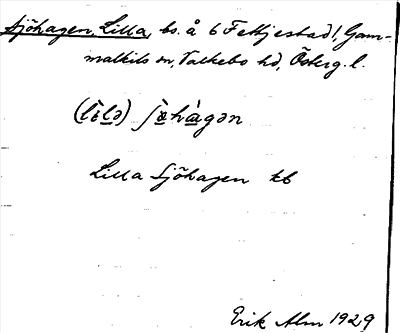 Sjöhagen, Lilla, bo. å 6 Fettjestad 1, Gam-
malkils sn, Valkebo hd, Österg. l.
(lìlə) ʃøhàgən
Lilla Sjöhagen kb
Erik Alm 1929